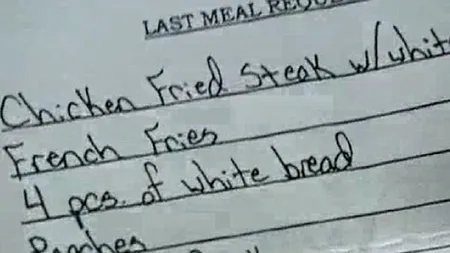 LAST MEAL REQUE
Chicken Fried Steak w/whit
French Fries
4 pcs. of white bread
Peaches